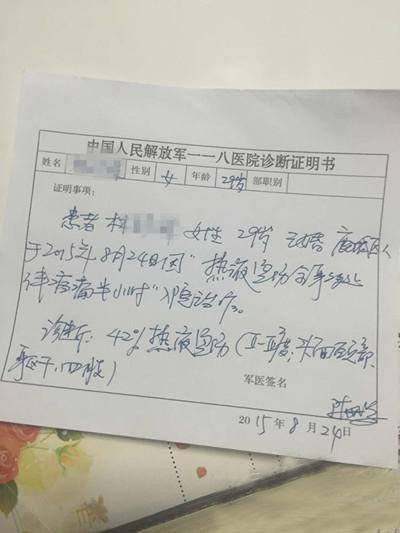 中国人民解放军一一八医院诊断证明书
姓名 性别 女 年龄 29岁 部职别
证明事项:
患者 林 女性 29岁 已婚 鹿城区人
于2015年8月24日因"热液烫伤全身多处
伴疼痛半小时"入院治疗。
诊断: 42%热液烫伤(II-III度;头面颈部
躯干、四肢)
军医签名
2015年8月24日